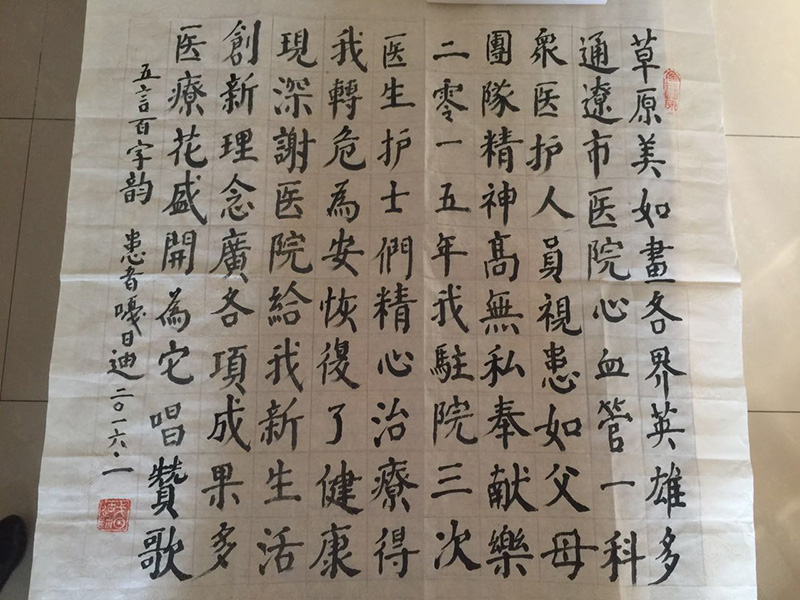 草原美如畫各界英雄多
通遼市医院心血管一科
衆医护人員視患如父母
團隊精神高無私奉献樂
二零一五年我駐院三次
医生护士們精心治療得
我轉危為安恢復了健康
現深謝医院給我新生活
創新理念廣各項成果多
医療花盛開為它唱贊歌
五言百字韵 患者嘎日迪二〇一六·一